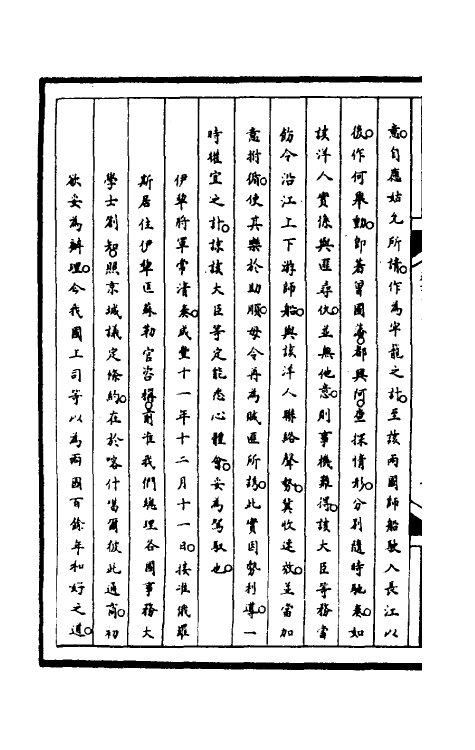 意。自應姑允所請。作為牢籠之計。至該兩國師船駛入長江以
後。作何舉動。即著曾國藩。都興阿。查探情形。分別隨時馳奏。如
該洋人實係與匪尋仇。並無他意。則事機難得。該大臣等務當
飭令沿江上下游師船。與該洋人聯絡聲勢。冀收速效。並當加
意拊循。使其樂於助順。毋令再為賊匪所誘。此實因勢利導。一
時權宜之計。諒該大臣等定能悉心體會。妥為駕馭也。
伊犂將軍常清奏。咸豐十一年十二月十一日。接准俄羅
斯居住伊犂匡蘇勒官咨稱。前准我們總理各國事務大
學士劄知。照京城議定條約。在於喀什噶爾彼此通商。初
欲妥為辦理。今我國上司等以為兩國百餘年和好之道。